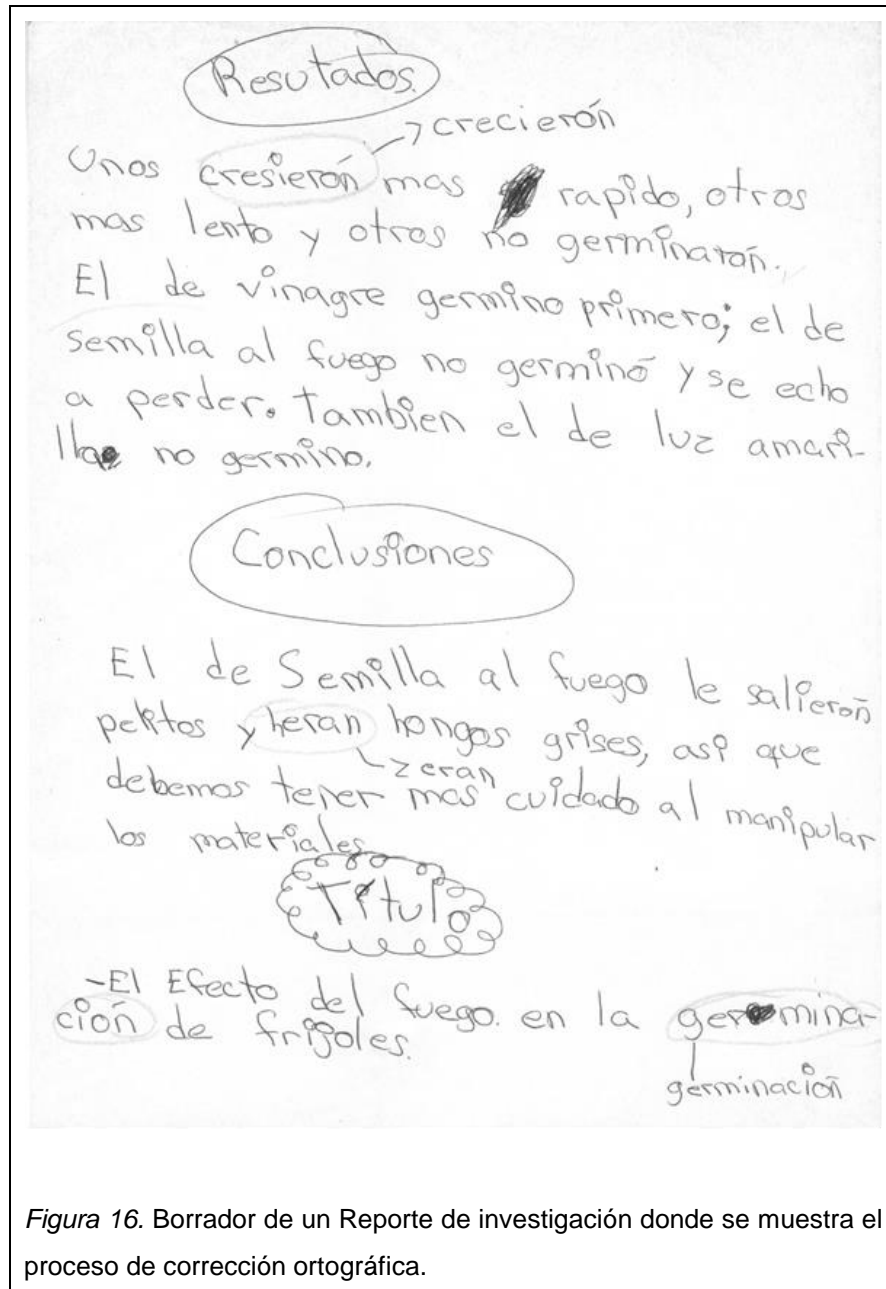 Resutados.
crecierón
Unos cresierón mas rapido, otros
mas lento y otros no germinarón.
El de vinagre germino primero; el de
semilla al fuego no germinó y se echo
a perder. Tambien el de luz amari-
lla no germino.
Conclusiones
El de Semilla al fuego le salierón
pelitos y heran hongos grises, asi que
eran
debemos tener mas cuidado al manipular
los materiales
Título
-El Efecto del fuego. en la germina-
ción de frijoles.
germinación
Figura 16. Borrador de un Reporte de investigación donde se muestra el
proceso de corrección ortográfica.